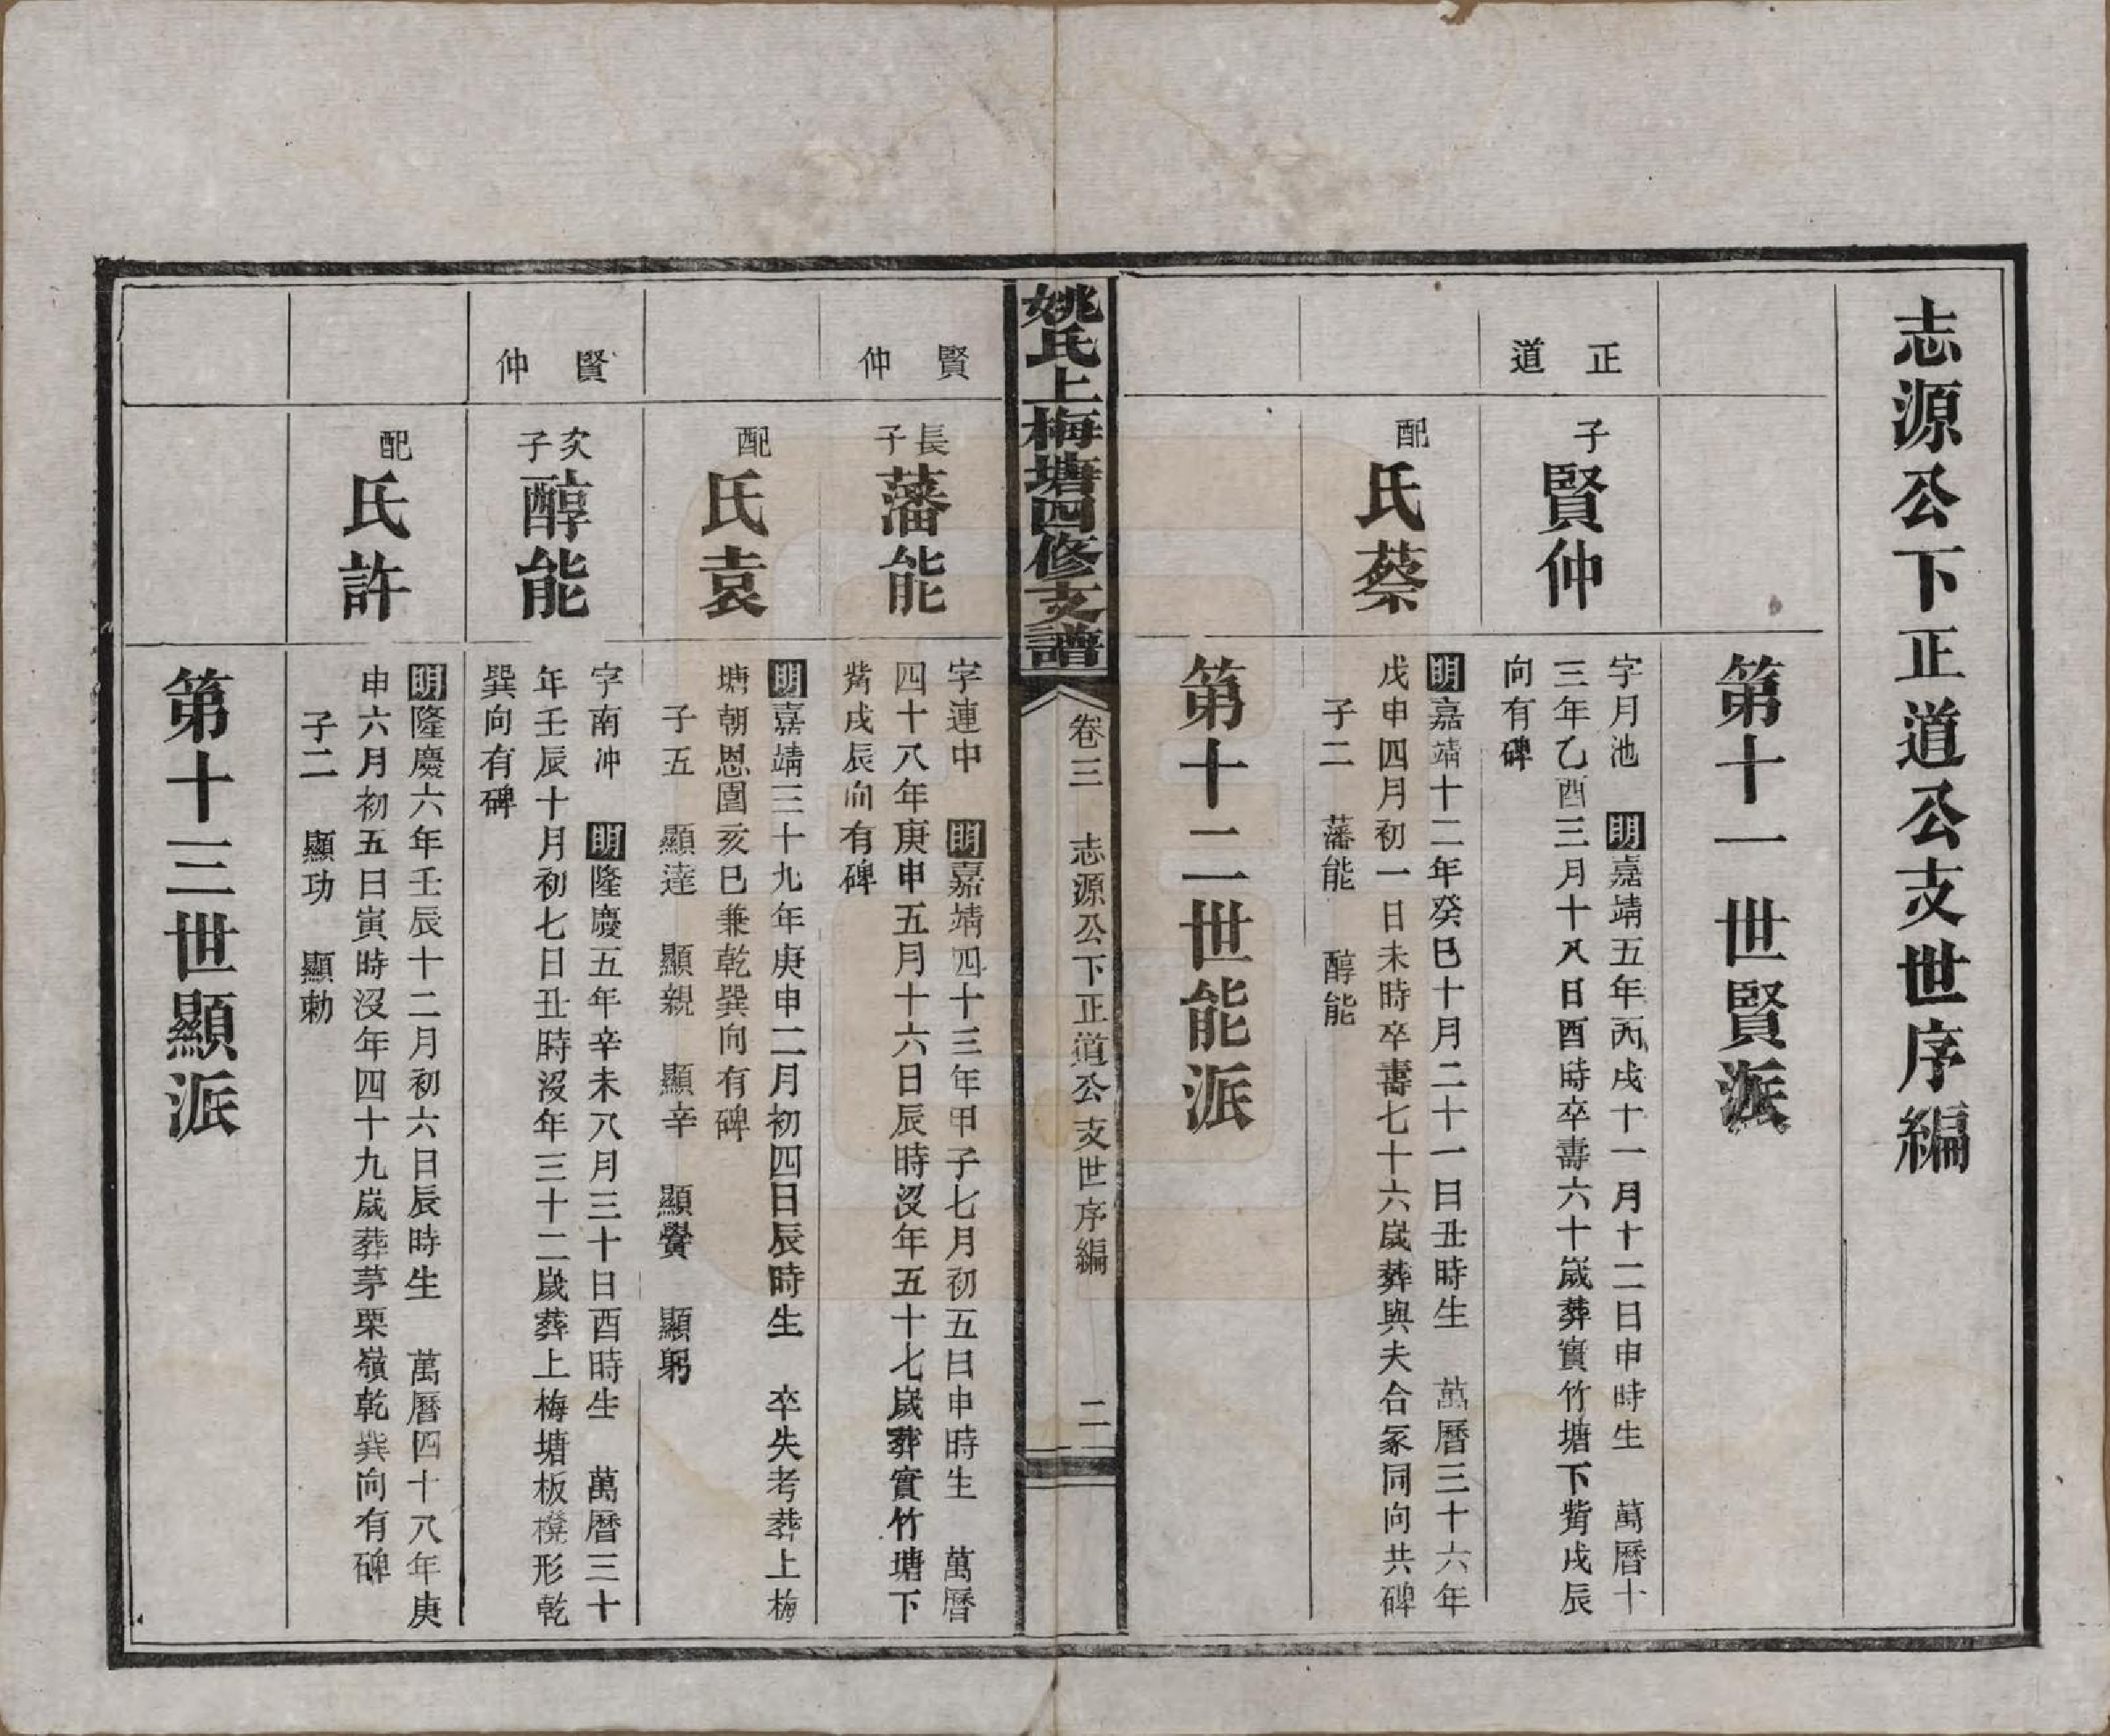 志源公下正道公支世序編
第十一世賢派
正道
子賢仲
字月池　明嘉靖五年丙戌十一月十二日申時生　萬曆十
三年乙酉三月十八日酉時卒壽六十歲葬實竹塘下觜戌辰
向有碑
配氏蔡
明嘉靖十二年癸巳十月二十一日丑時生　萬曆三十六年
戊申四月初一日未時卒壽七十六歲葬與夫合冢同向共碑
子二　藩能　醇能
第十二世能派
姚氏上梅塘四修支譜
卷三　志源公下正道公支世序編
二
賢仲
長子藩能
字連中　明嘉靖四十三年甲子七月初五日申時生　萬曆
四十八年庚申五月十六日辰時沒年五十七歲葬實竹塘下
觜戌辰向有碑
配氏袁
明嘉靖三十九年庚申二月初四日辰時生　卒失考葬上梅
塘朝恩圍亥巳兼乾巽向有碑
子五　顯達　顯親　顯辛　顯黌　顯躬
賢仲
次子醇能
字南沖　明隆慶五年辛未八月三十日酉時生　萬曆三十
年壬辰十月初七日丑時沒年三十二歲葬上梅塘板櫈形乾
巽向有碑
配氏許
明隆慶六年壬辰十二月初六日辰時生　萬曆四十八年庚
申六月初五日寅時沒年四十九歲葬茅栗嶺乾巽向有碑
子二　顯功　顯勅
第十三世顯派